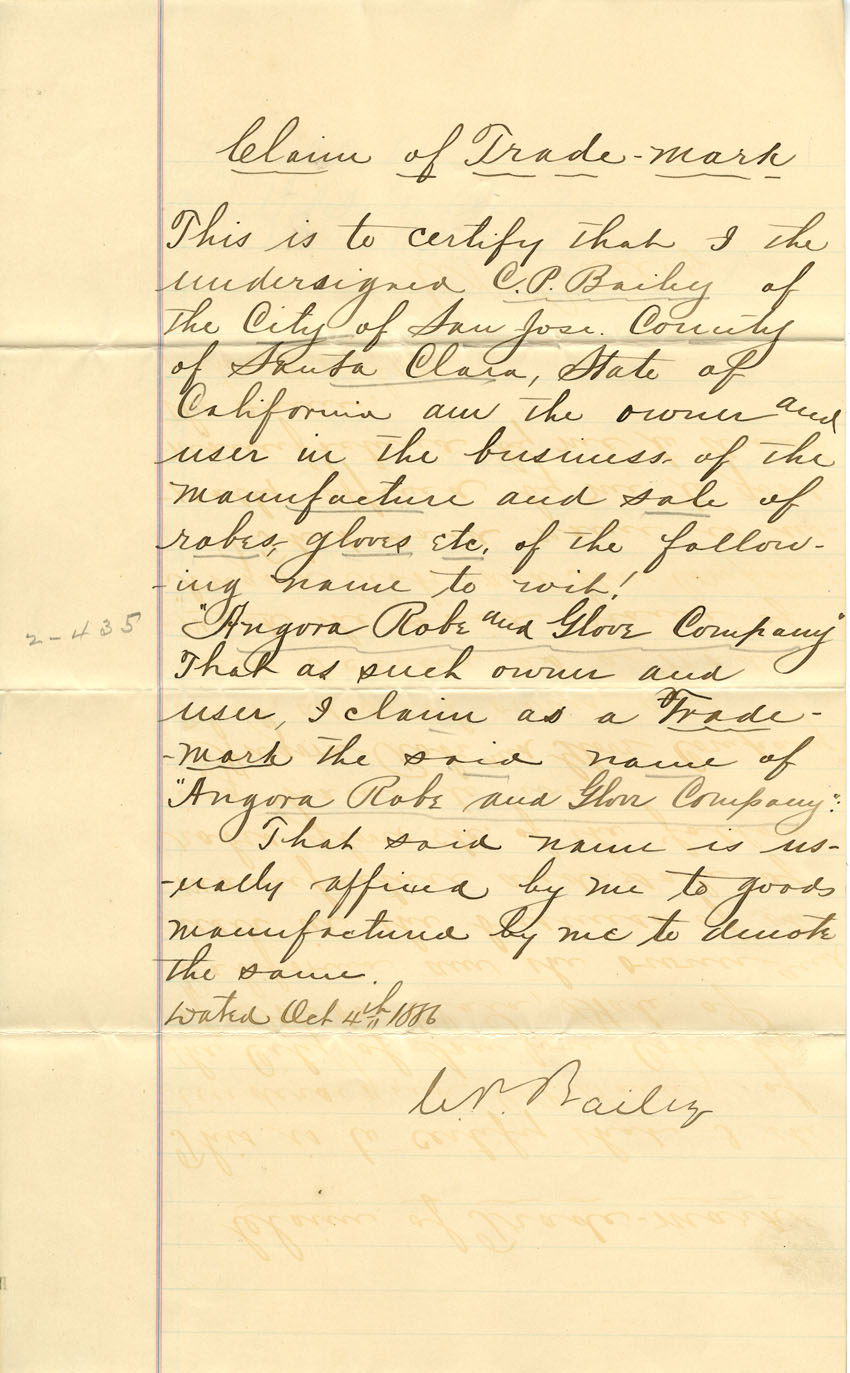 Claim of Trade-mark
This is to certify that I the
undersigned C.P. Bailey of
the City of San Jose. County
of Santa Clara, State of
California am the owner and
user in the business of the
manufacture and sale of
robes, gloves etc. of the follow-
-ing name to wit!
"Angora Robe and Glove Company"
2-435
That as such owner and
user, I claim as a Trade-
-mark the said name of
"Angora Robe and Glove Company":
That said name is us-
-ually affixed by me to goods
manufactured by me to denote
the same.
Dated Oct 4th 1886
C.P. Bailey